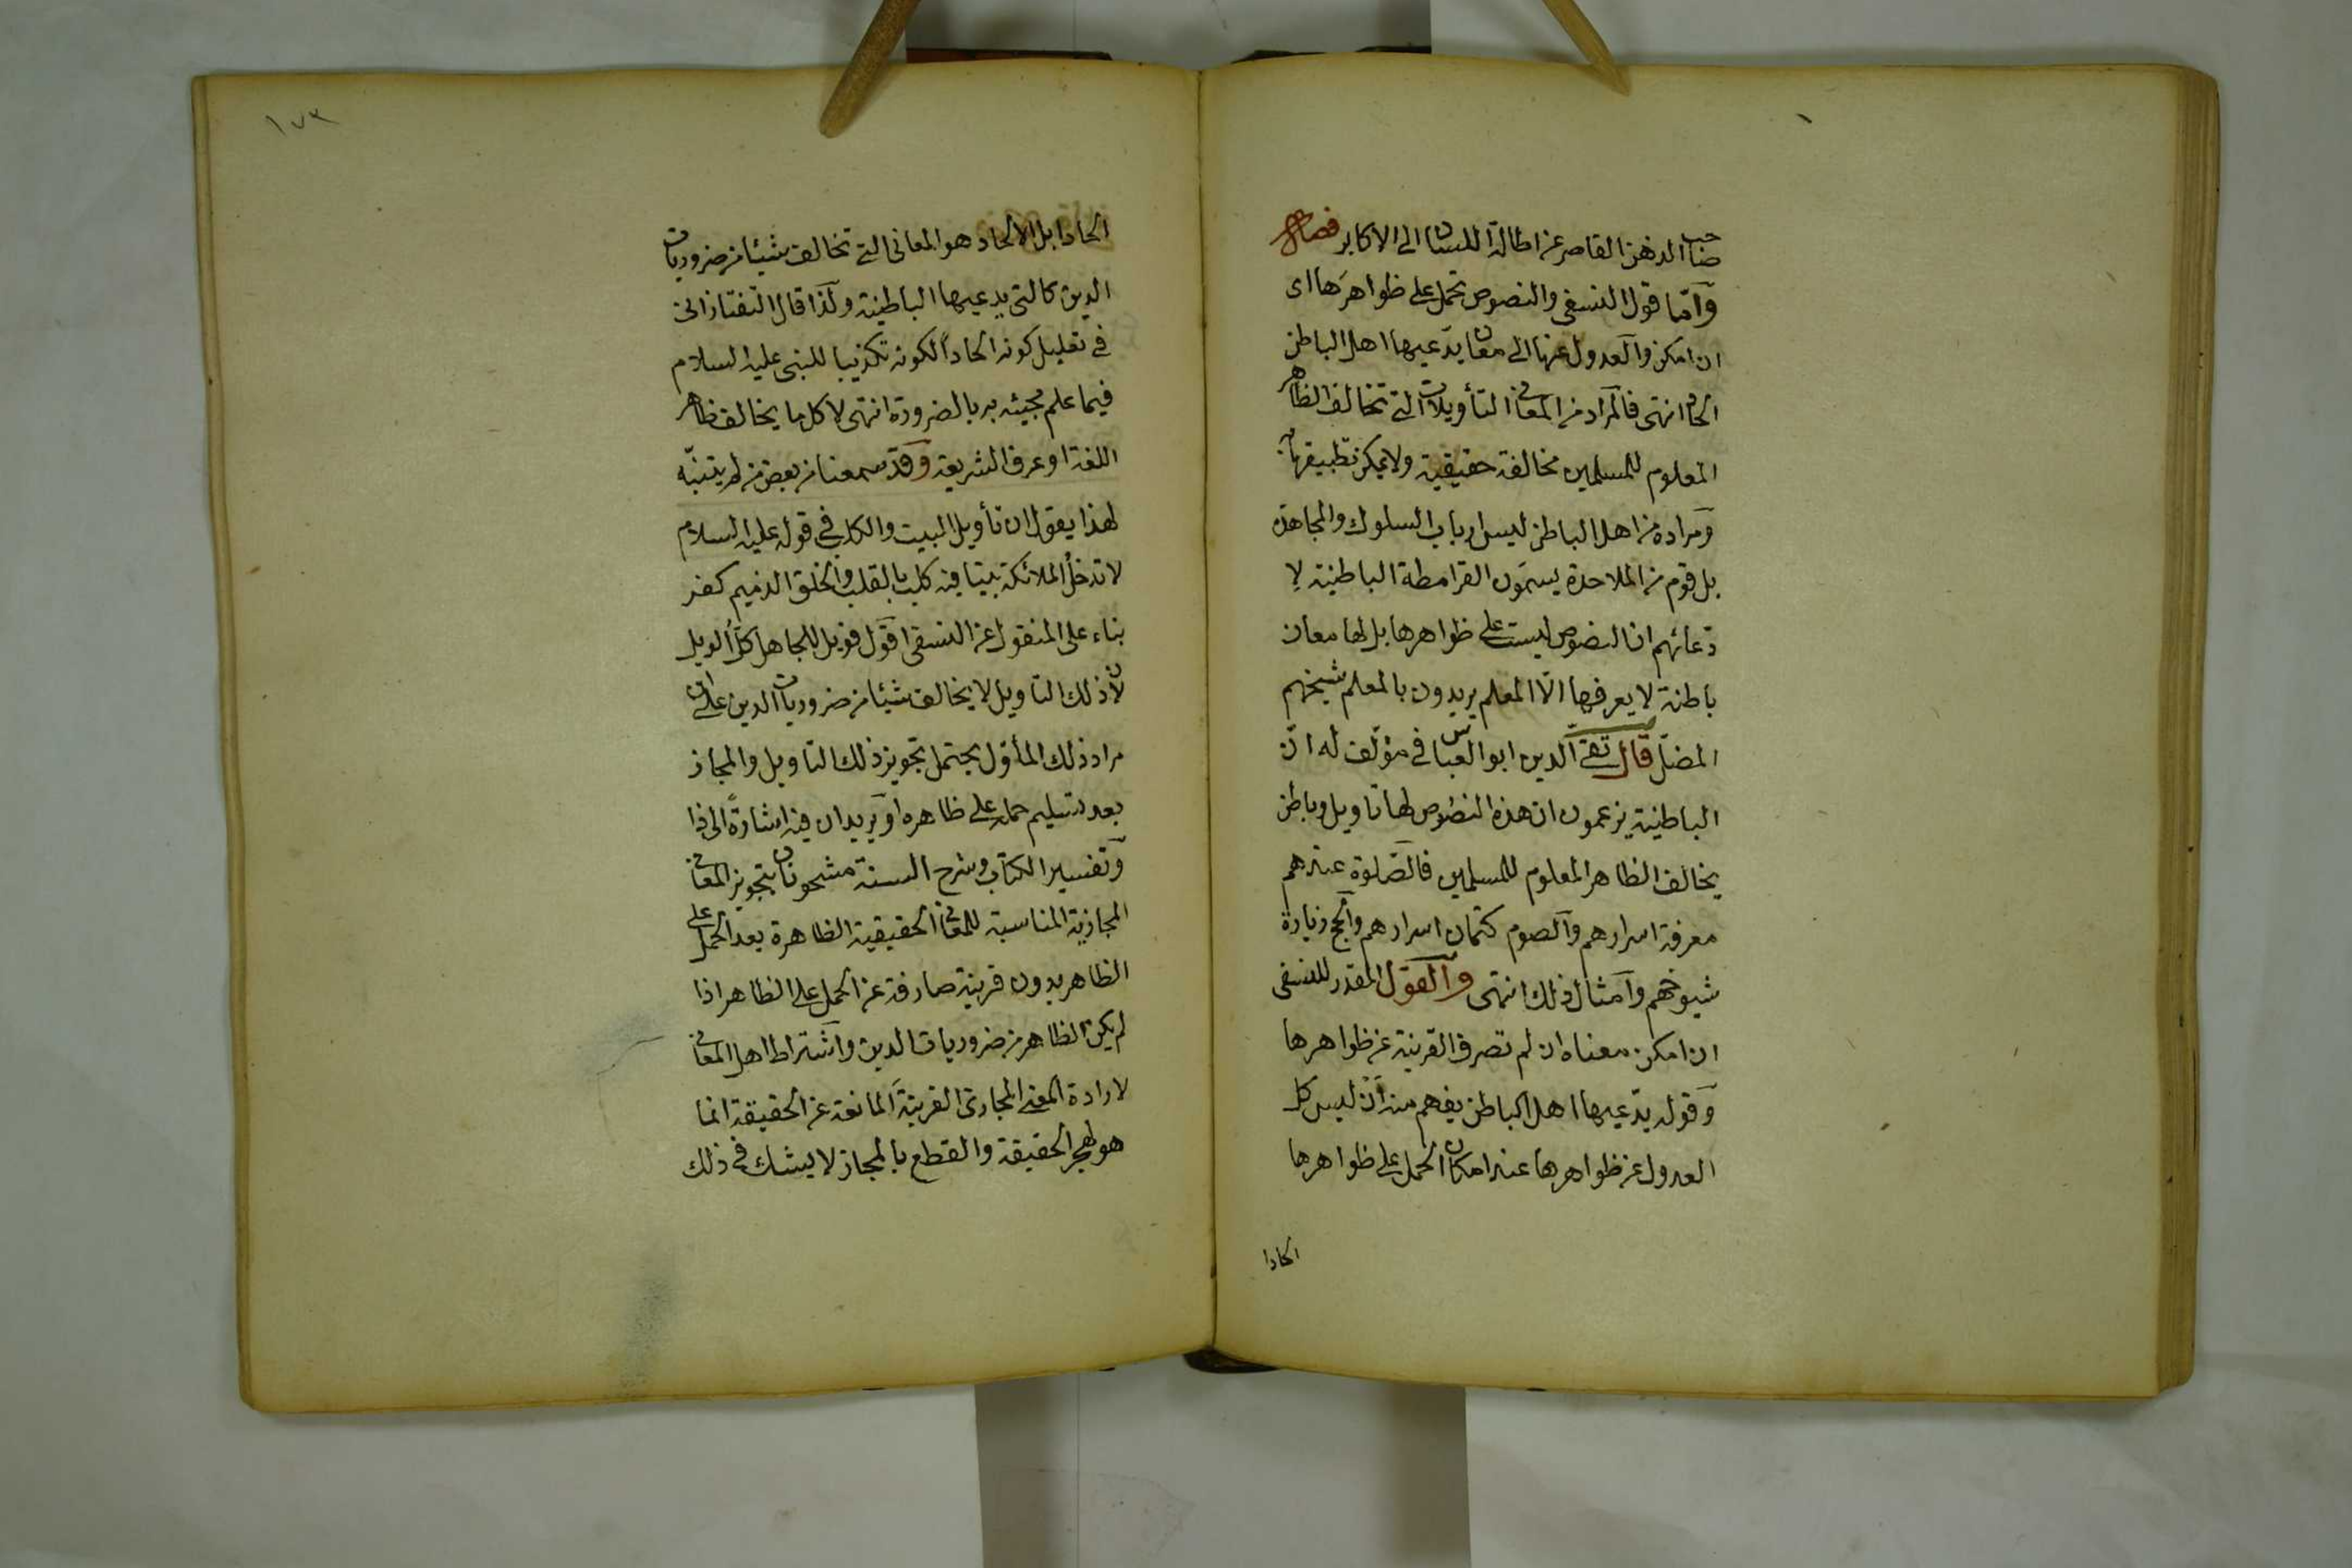 صاحب الذهن القاصر عن اطالة اللسان الى الاكابر فصل
وأمّا قول النسفى والنصوص تحمل على ظواهرها اى
ان امكن والعدول عنها الى معان يدّعيها اهل الباطن
الحاد انتهى فالمراد من المعانى التأويلات التى تخالف الظاهر
المعلوم للمسلمين مخالفة حقيقية ولا يمكن تطبيقها به
ومراده من اهل الباطن ليس ارباب السلوك والمجاهدة
بل قوم من الملاحدة يسمّون القرامطة الباطنية لا
دّعائهم ان النصوص ليست على ظواهرها بل لها معان
باطنة لا يعرفها الّا المعلم يريدون بالمعلم شيخهم
المضلّ قال تقى الدين ابو العباس فى مؤلّف له انّ
الباطنية يزعمون ان هذه النصوص لها تاويل وباطن
يخالف الظاهر المعلوم للمسلمين فالصّلوة عندهم
معرفة اسرارهم والصوم كتمان اسرارهم والحج زيارة
شيوخهم وامثال ذلك انتهى والقول المقدر للنسفى
ان امكن معناه ان لم تصرف القرينة عن ظواهرها
وقوله يدّعيها اهل الباطن يفهم منه أن ليس كل
العدول عن ظواهرها عند امكان الحمل على ظواهرها
الحادا
١٧٣
الحادا بل الالحاد هو المعانى التى تخالف شيئا من ضروريات
الدين كالتى يدعيها الباطنية ولذا قال التفتازانى
فى تعليل كونه الحاداً لكونه تكذيبا للنبى عليه السلام
فيما علم مجيئه به بالضرورة انتهى لا كل ما يخالف ظاهر
اللغة او عرف الشريعة وقد سمعنا من بعض من لم يتنبّه
لهذا يقول ان تأويل البيت والكلب فى قوله عليه السلام
لا تدخل الملائكة بيتا فيه كلب بالقلب والخلق الذميم كفر
بناء على المنقول عن النسفى اقول فويل للجاهل كلّ الويل
لان ذلك التاويل لا يخالف شيئا من ضروريات الدين على ان
مراد ذلك المأوّل يحتمل تجويز ذلك التاويل والمجاز
بعد تسليم حمله على ظاهره او يريد ان فيه اشارةً الى ذا
وتفسير الكتاب وشرح السنة مشحونان بتجويز المعانى
المجازية المناسبة للمعانى الحقيقية الظاهرة بعد الحمل على
الظاهر بدون قرينة صارفة عن الحمل على الظاهر اذا
لم يكن الظاهر من ضروريات الدين واشتراط اهل المعانى
لارادة المعنى المجازى القرينة المانعة عن الحقيقة انما
هو لهجر الحقيقة والقطع بالمجاز لا يشك فى ذلك